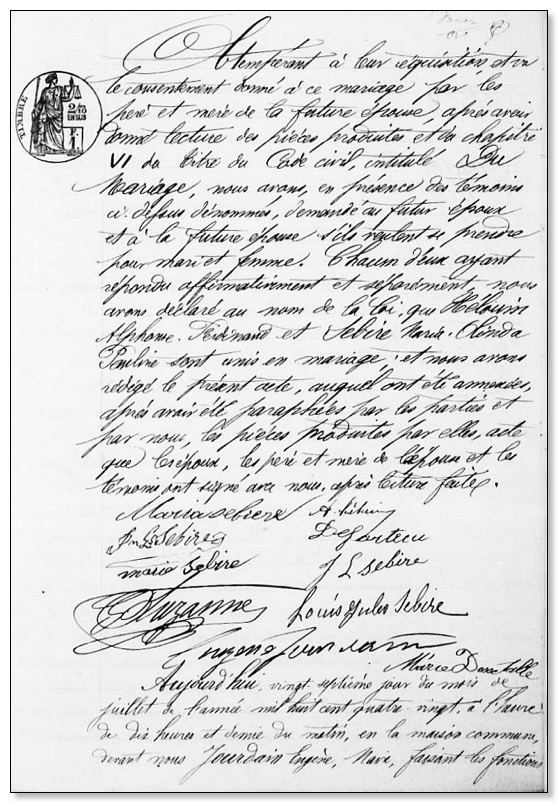 Obtempérant à leur réquisition, et vu
le consentement donné à ce mariage par les
peré et mere de la future épouse, après avoir
donné lecture des pièces produites et du chapitre
VI du titre du Code civil, intitulé Du
Mariage, nous avons, en présence des témoins
ci-dessus dénommés, demandé au futur époux
et à la future épouse s'ils veulent se prendre
pour mari et femme. Chacun d'eux ayant
répondu affirmativement et séparément, nous
avons déclaré au nom de la loi, que Hélouin
Alphonse Ferdinand et Sebire Maria Clinda
Pauline sont unis en mariage, et nous avons
rédigé le présent acte, auquel ont été annexées,
après avoir été paraphées par les parties et
par nous, les pièces produites par elles, acte
que les époux, les peré et mere de l'épouse et les
témoins ont signé avec nous, après lecture faite.
Maria Sebire
Sebire
marie Sebire J L Sebire
Suzanne Louis Jules Sebire
Eugène Jourdain
Marie D
Aujourd'hui, vingt septième jour du mois de
juillet de l'année mil huit cent quatre-vingt, à l'heure
de dix heures et demie du matin, en la maison commune,
devant nous Jourdain Eugène, Maire, faisant les fonctions
TIMBRE
2/10
EN SUS